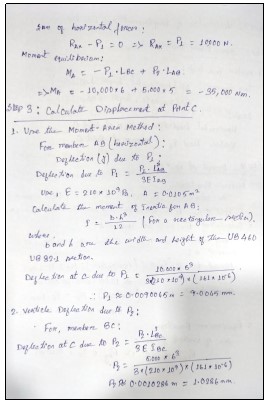 Sum of horizontal forces:
R_Ax - P_1 = 0 => R_Ax = P_1 = 10,000 N.
Moment equilibrium:
M_A = -P_1·L_BC + P_2·L_AB.
=> M_A = -10,000×6 + 5,000×5 = -35,000 Nm.
Step 3: Calculate Displacement at Point C.
1. Use the Moment-Area Method:
For member AB (horizontal):
Deflection (y) due to P_1:
Deflection due to P_1 =
3EI_AB
Use, E = 210×10^9 Pa, A = 0.0105 m²
Calculate the moment of Inertia for AB:
I = b·h³ / 12 (For a rectangular section).
where,
b and h are the width and height of the UB 460
UB 82.1 section.
Deflection at C due to P_1 = 10,000 × 5³ / 3(210×10^9)×(161×10^-6)
∴ P_1 ≈ 0.0090065 m = 9.0065 mm.
2. Vertical Deflection due to P_2:
For, member BC:
Deflection at C due to P_2 = P_2·L_BC³ / 3EI_BC
P_2 = 5,000 × 6³ / 3×(210×10^9)×(161×10^-6)
P_2 ≈ 0.0010286 m = 1.0286 mm.